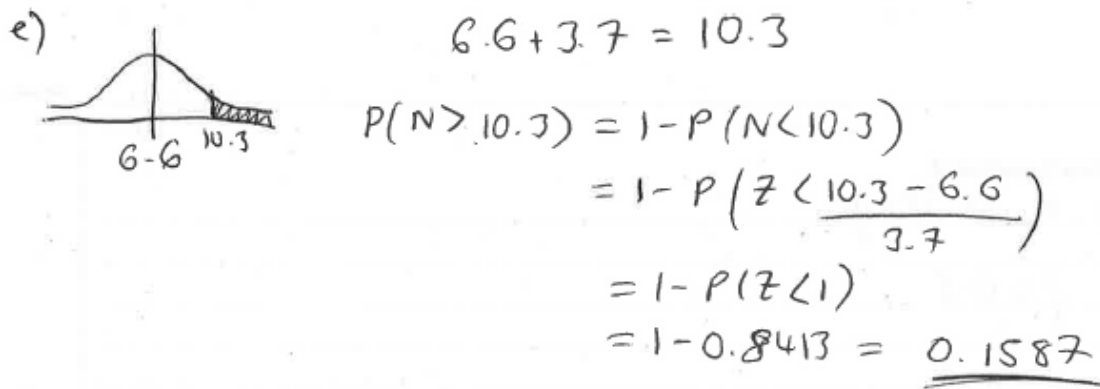 e)
6.6 + 3.7 = 10.3
6-6 10.3
P(N > 10.3) = 1 - P(N < 10.3)
= 1 - P(Z < (10.3 - 6.6)/3.7)
= 1 - P(Z < 1)
= 1 - 0.8413 = 0.1587